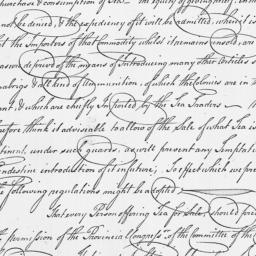 purchase & consumption of Tea
not be denied, & the expediency of it will be admitted, when it is
that the Importers of that Commodity whilst it remains unsold, are
reason deprived of the means of Introducing many other Articles
& all kind of Ammunition, of which the Colonies are in
want, & which are chiefly Imported by the Tea Traders —
therefore think it adviseable to allow of the Sale of what Tea is
under such guards, as will prevent any Temptation
Clandestine introduction of it in future; To effect which we pre
the following regulations might be adopted,
That every Person offering Tea for Sale, should pre
permission of the Provincial Congress, or the Committee of the